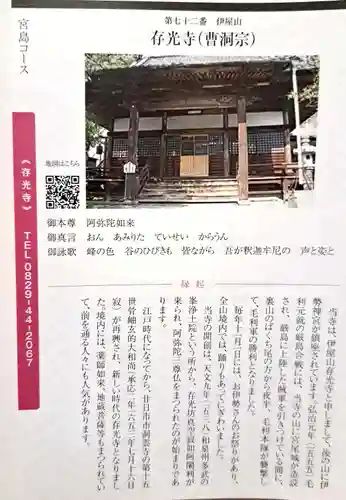 第七十二番　伊屋山
存光寺(曹洞宗)
宮島コース
《存光寺》
TEL 0829-44-2067
地図はこちら
御本尊　阿弥陀如来
御真言　おん　あみりた　ていせい　からうん
御詠歌　峰の色　谷のひびきも　皆ながら　吾が釈迦牟尼の　声と姿と
縁起
当寺は、伊屋山存光寺と申しまして、後の山に伊
勢神宮が鎮座されています。弘治元年（一五五五）毛
利元就の厳島合戦には、当寺の山に宮尾城が造設
され、厳島に上陸した賊軍を引きつけている間に、
裏山のばくち尾の方から夜半、毛利本隊が襲撃し
て、毛利軍の勝利になりました。
毎年十二月二日には、お伊勢さんのお祭りがあり、
全山境内で昔は踊りもあってにぎわいました。
当寺の開創は、天文九年（一五二八）和泉州多武の
峯浄土院という所から、存光坊真空寂如阿闍利が
来られ、阿弥陀三尊仏をまつられたのが始まりであ
ります。
江戸時代になってから、廿日市市洞雲寺の第十五
世骨細玄的大和尚（承応二年（六五二）七月十六日
寂）が再興され、新しい時代の存光寺となりまし
た。境内には、薬師如来、地蔵菩薩等もまつられてい
て、前を通る人々にも人気があります。